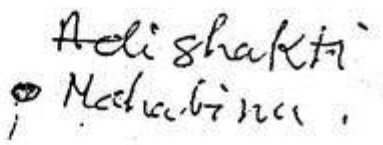 Adishakti
Mahabina.